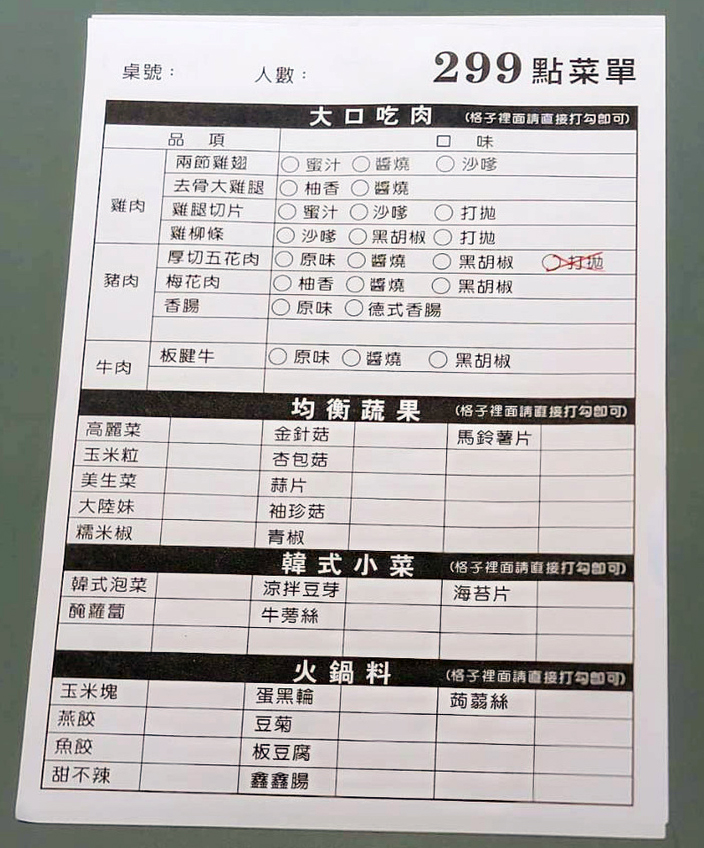 桌號： 人數： 299點菜單
大口吃肉 (格子裡面請直接打勾即可)
品 項 口 味
雞肉
兩節雞翅 ○ 蜜汁 ○ 醬燒 ○ 沙嗲
去骨大雞腿 ○ 柚香 ○ 醬燒
雞腿切片 ○ 蜜汁 ○ 沙嗲 ○ 打拋
雞柳條 ○ 沙嗲 ○ 黑胡椒 ○ 打拋
豬肉
厚切五花肉 ○ 原味 ○ 醬燒 ○ 黑胡椒 ○ 打拋
梅花肉 ○ 柚香 ○ 醬燒 ○ 黑胡椒
香腸 ○ 原味 ○ 德式香腸
牛肉
板腱牛 ○ 原味 ○ 醬燒 ○ 黑胡椒
均衡蔬果 (格子裡面請直接打勾即可)
高麗菜 金針菇 馬鈴薯片
玉米粒 杏包菇
美生菜 蒜片
大陸妹 袖珍菇
糯米椒 青椒
韓式小菜 (格子裡面請直接打勾即可)
韓式泡菜 涼拌豆芽 海苔片
醃蘿蔔 牛蒡絲
火鍋料 (格子裡面請直接打勾即可)
玉米塊 蛋黑輪 蒟蒻絲
燕餃 豆菊
魚餃 板豆腐
甜不辣 鑫鑫腸